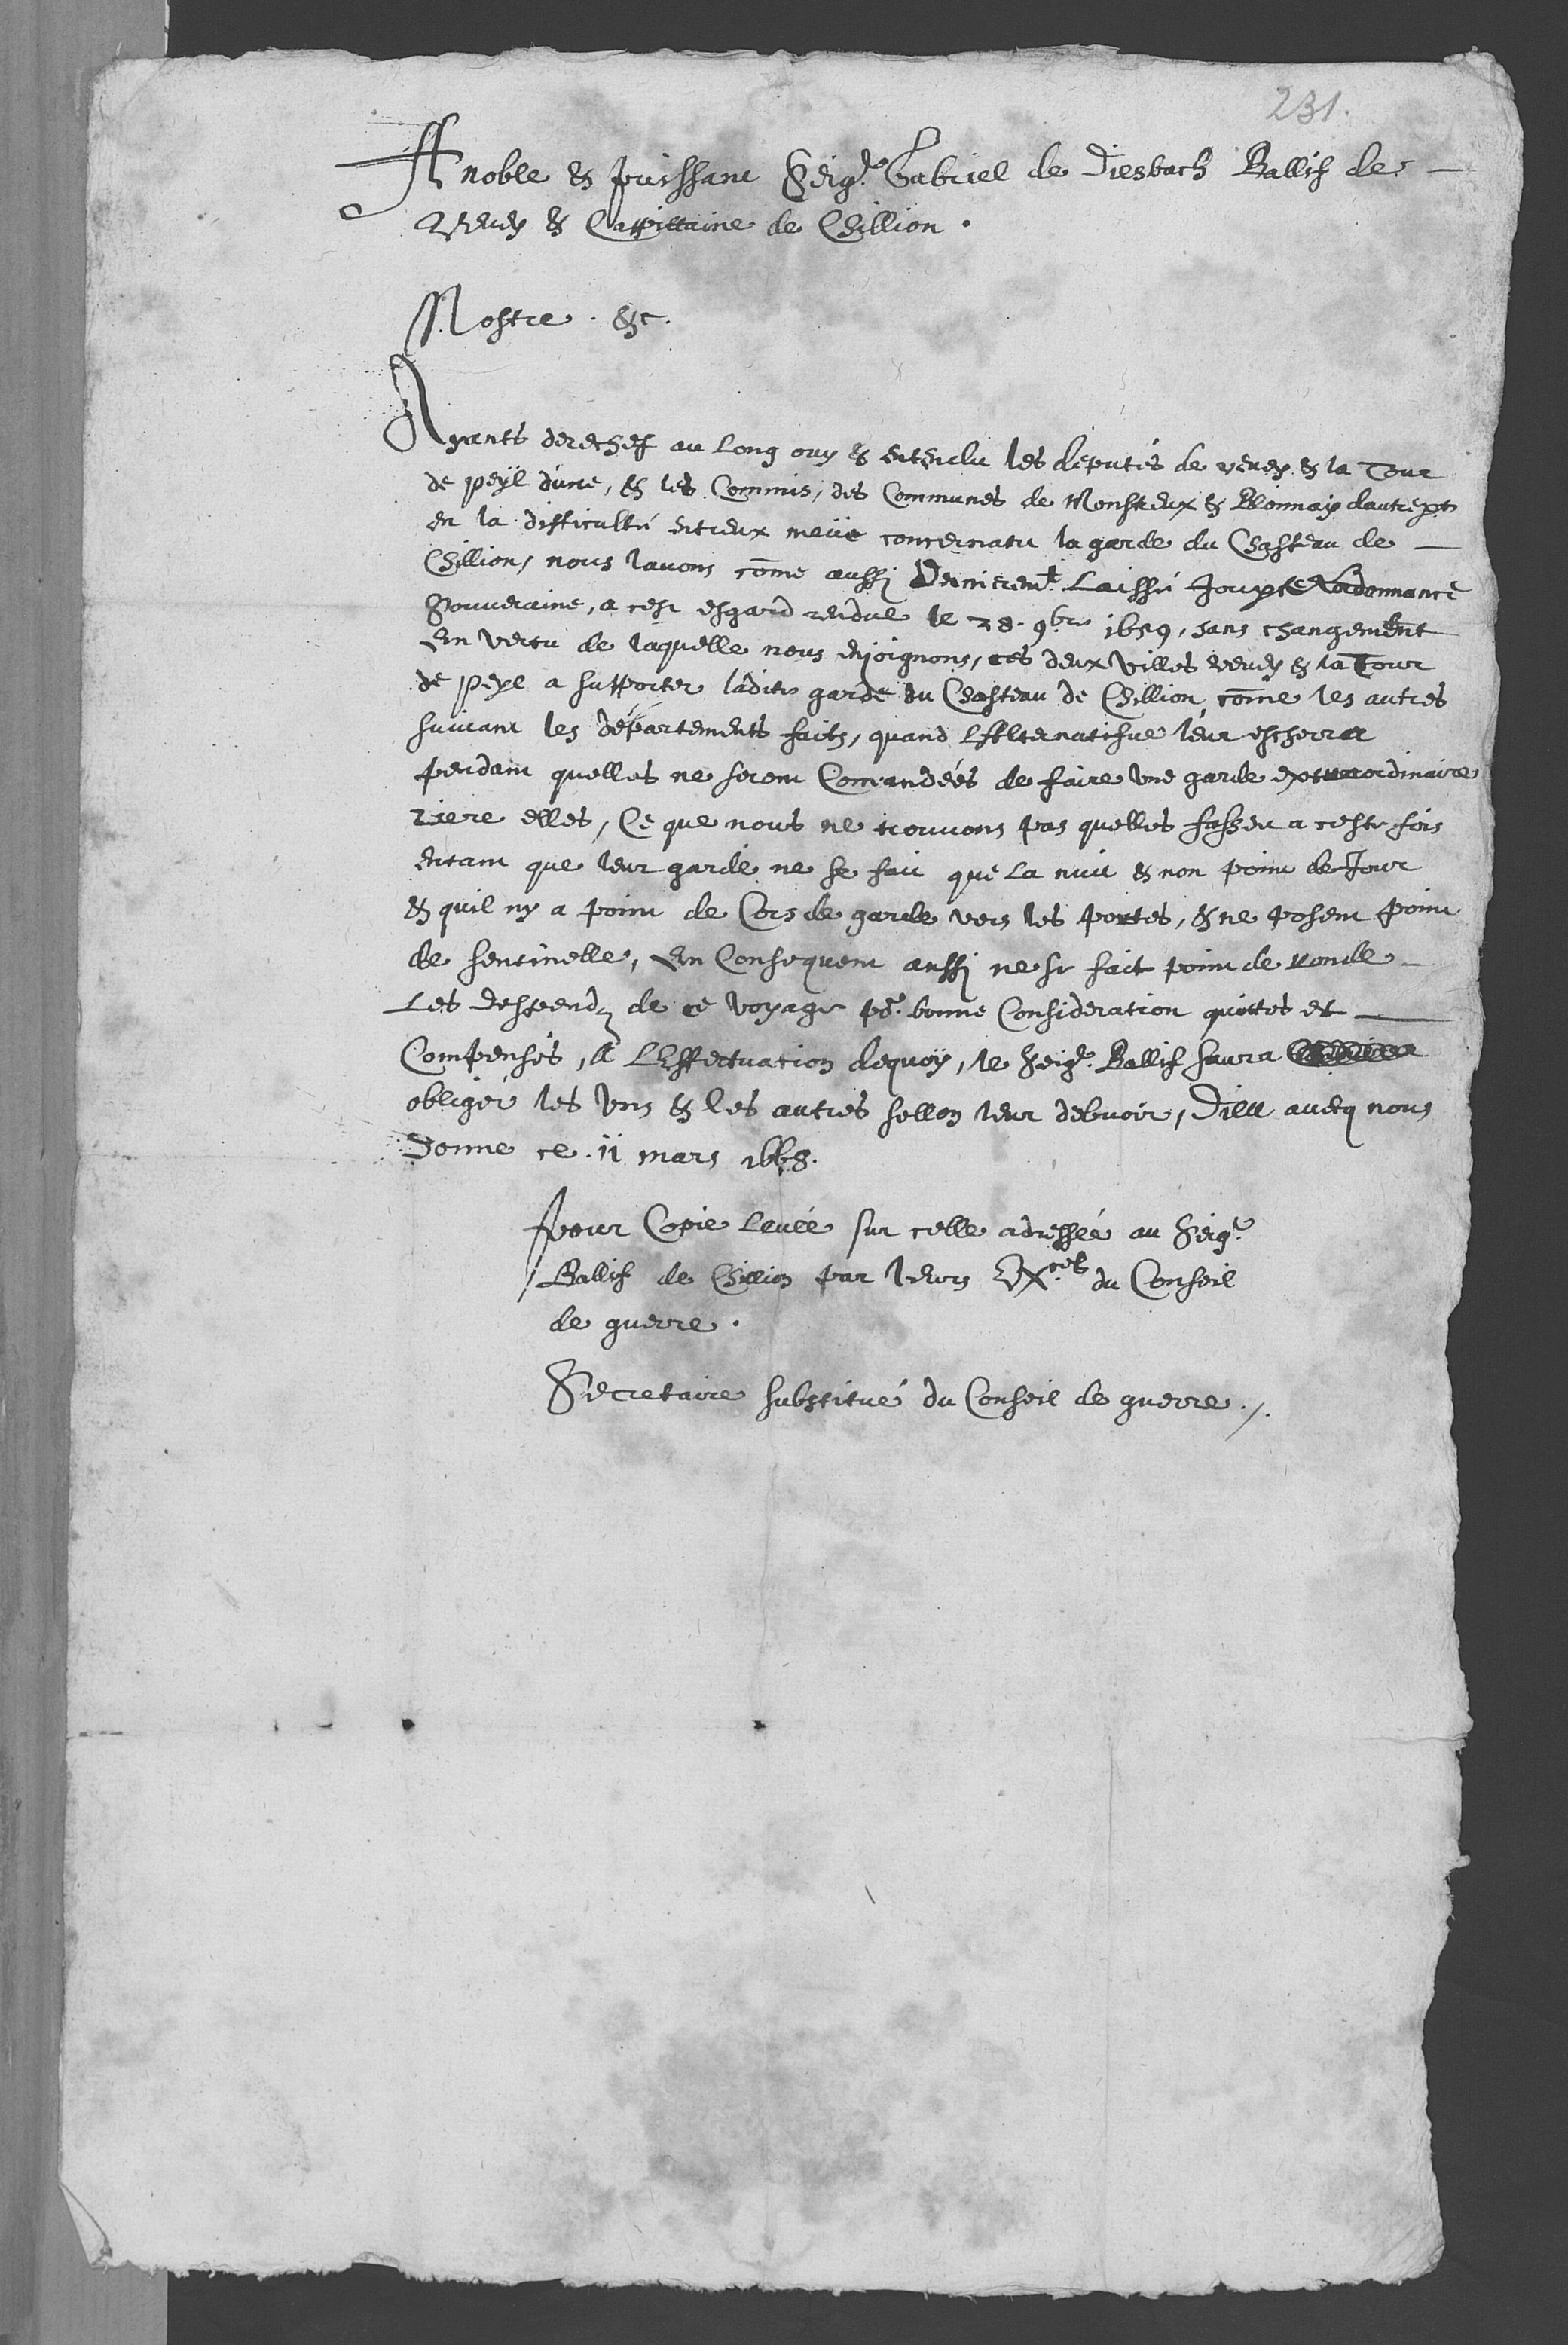 231.
A noble & puissant Seigr. Gabriel de Diesbach Ballif de
Vevey & Cappittaine de Chillion.
Nostre. &c.
Ayants derechef au long ouy & entendu les députés de vevey & la Tour
de peyl d'une, & les Commis, des Communes de Monstreux & Blonnay dautre pt
en la difficulté entreux meüe concernant la garde du Chasteau de
Chillion, nous lavons cōme aussi Dernieremt. Laissé jouxte Lordonnance
Souveraine, a cest esgard rendue le 28. 9bre 1659, sans changement
En vertu de laquelle nous enjoignons, ces deux Villes vevey & la Tour
de peyl a supporter ladite garde du Chasteau de Chillion, cōme les autres
suivant les départements faits, quand LAlternatifve leur escherra
pendant quelles ne seront Comandéés de faire une garde extraordinaire
riere elles, Ce que nous ne trouvons pas quelles fassent a ceste fois
entant que leur garde ne se fait que La nuit & non point de Jour
& quil ny a point de Cors de garde vers les portes, & ne posent point
de sentinelle, En Consequent aussi ne se fait point de ronde
Les despendz de ce voyage pr. bonne Consideration quittes et
Compensés, A LEffectuation dequoy, le Seigr. Ballif saura
obliger les uns & les autres sellon leur debvoir, Dieu avecq nous
Donne ce. 11 mars 1668.
Pour Copie Levée sur celle adressée au Seigr.
Ballif de Chillion par leurs Exces. du Conseil
de guerre.
Secretaire substitué du Conseil de guerre./.